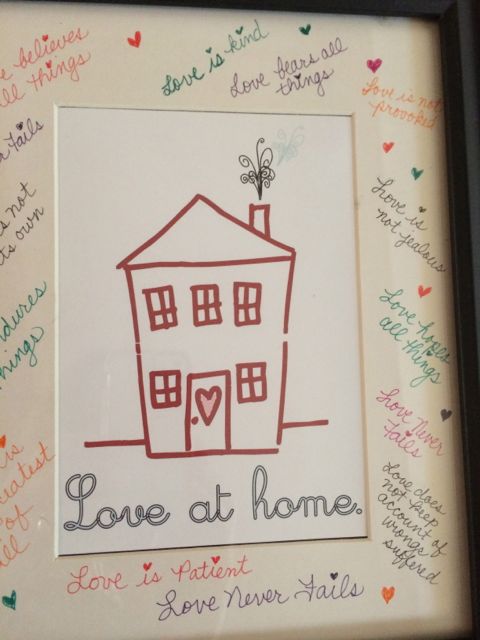 believes
all things
Love is kind
Love bears all
things
Love is not
provoked
Fails
is not
its own
Love is
not jealous
endures
things
Love hopes
all things
Love Never
Fails
is
greatest
of
all
Love does
not keep
account of
wrongs
suffered
Love at home.
Love is Patient
Love Never Fails